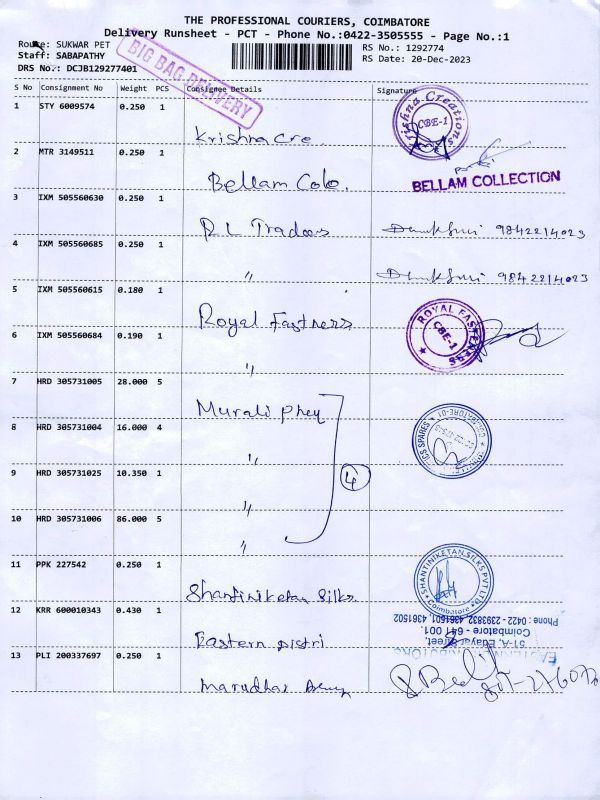 THE PROFESSIONAL COURIERS, COIMBATORE
Delivery Runsheet - PCT - Phone No.:0422-3505555 - Page No.:1
Route: SUKWAR PET
RS No.: 1292774
Staff: SABAPATHY
RS Date: 20-Dec-2023
DRS No.: DCJB129277401
BIG BAG DELIVERY
S No Consignment No Weight PCS Consignee Details Signature
1 STY 6009574 0.250 1
Krishna Cre.
CBE-1
2 MTR 3149511 0.250 1
Bellam Colo.
BELLAM COLLECTION
3 IXM 505560630 0.250 1
R L Tradors 9842214023
4 IXM 505560685 0.250 1
〃 9842214023
5 IXM 505560615 0.180 1
Royal Fastners
ROYAL FASTENERS
CBE-1
6 IXM 505560684 0.190 1
〃
7 HRD 305731005 28.000 5
Murali Phey
8 HRD 305731004 16.000 4
〃
9 HRD 305731025 10.350 1
〃
4
10 HRD 305731006 86.000 5
〃
11 PPK 227542 0.250 1
Shantiniketan Silks.
SHANTINIKETAN SILKS PVT LTD
Coimbatore
12 KRR 600010343 0.430 1
Eastern Distri
51-A, Edayar Street,
Coimbatore - 641 001.
Phone : 0422 - 2393832, 4361501, 4361502
13 PLI 200337697 0.250 1
Marudhar